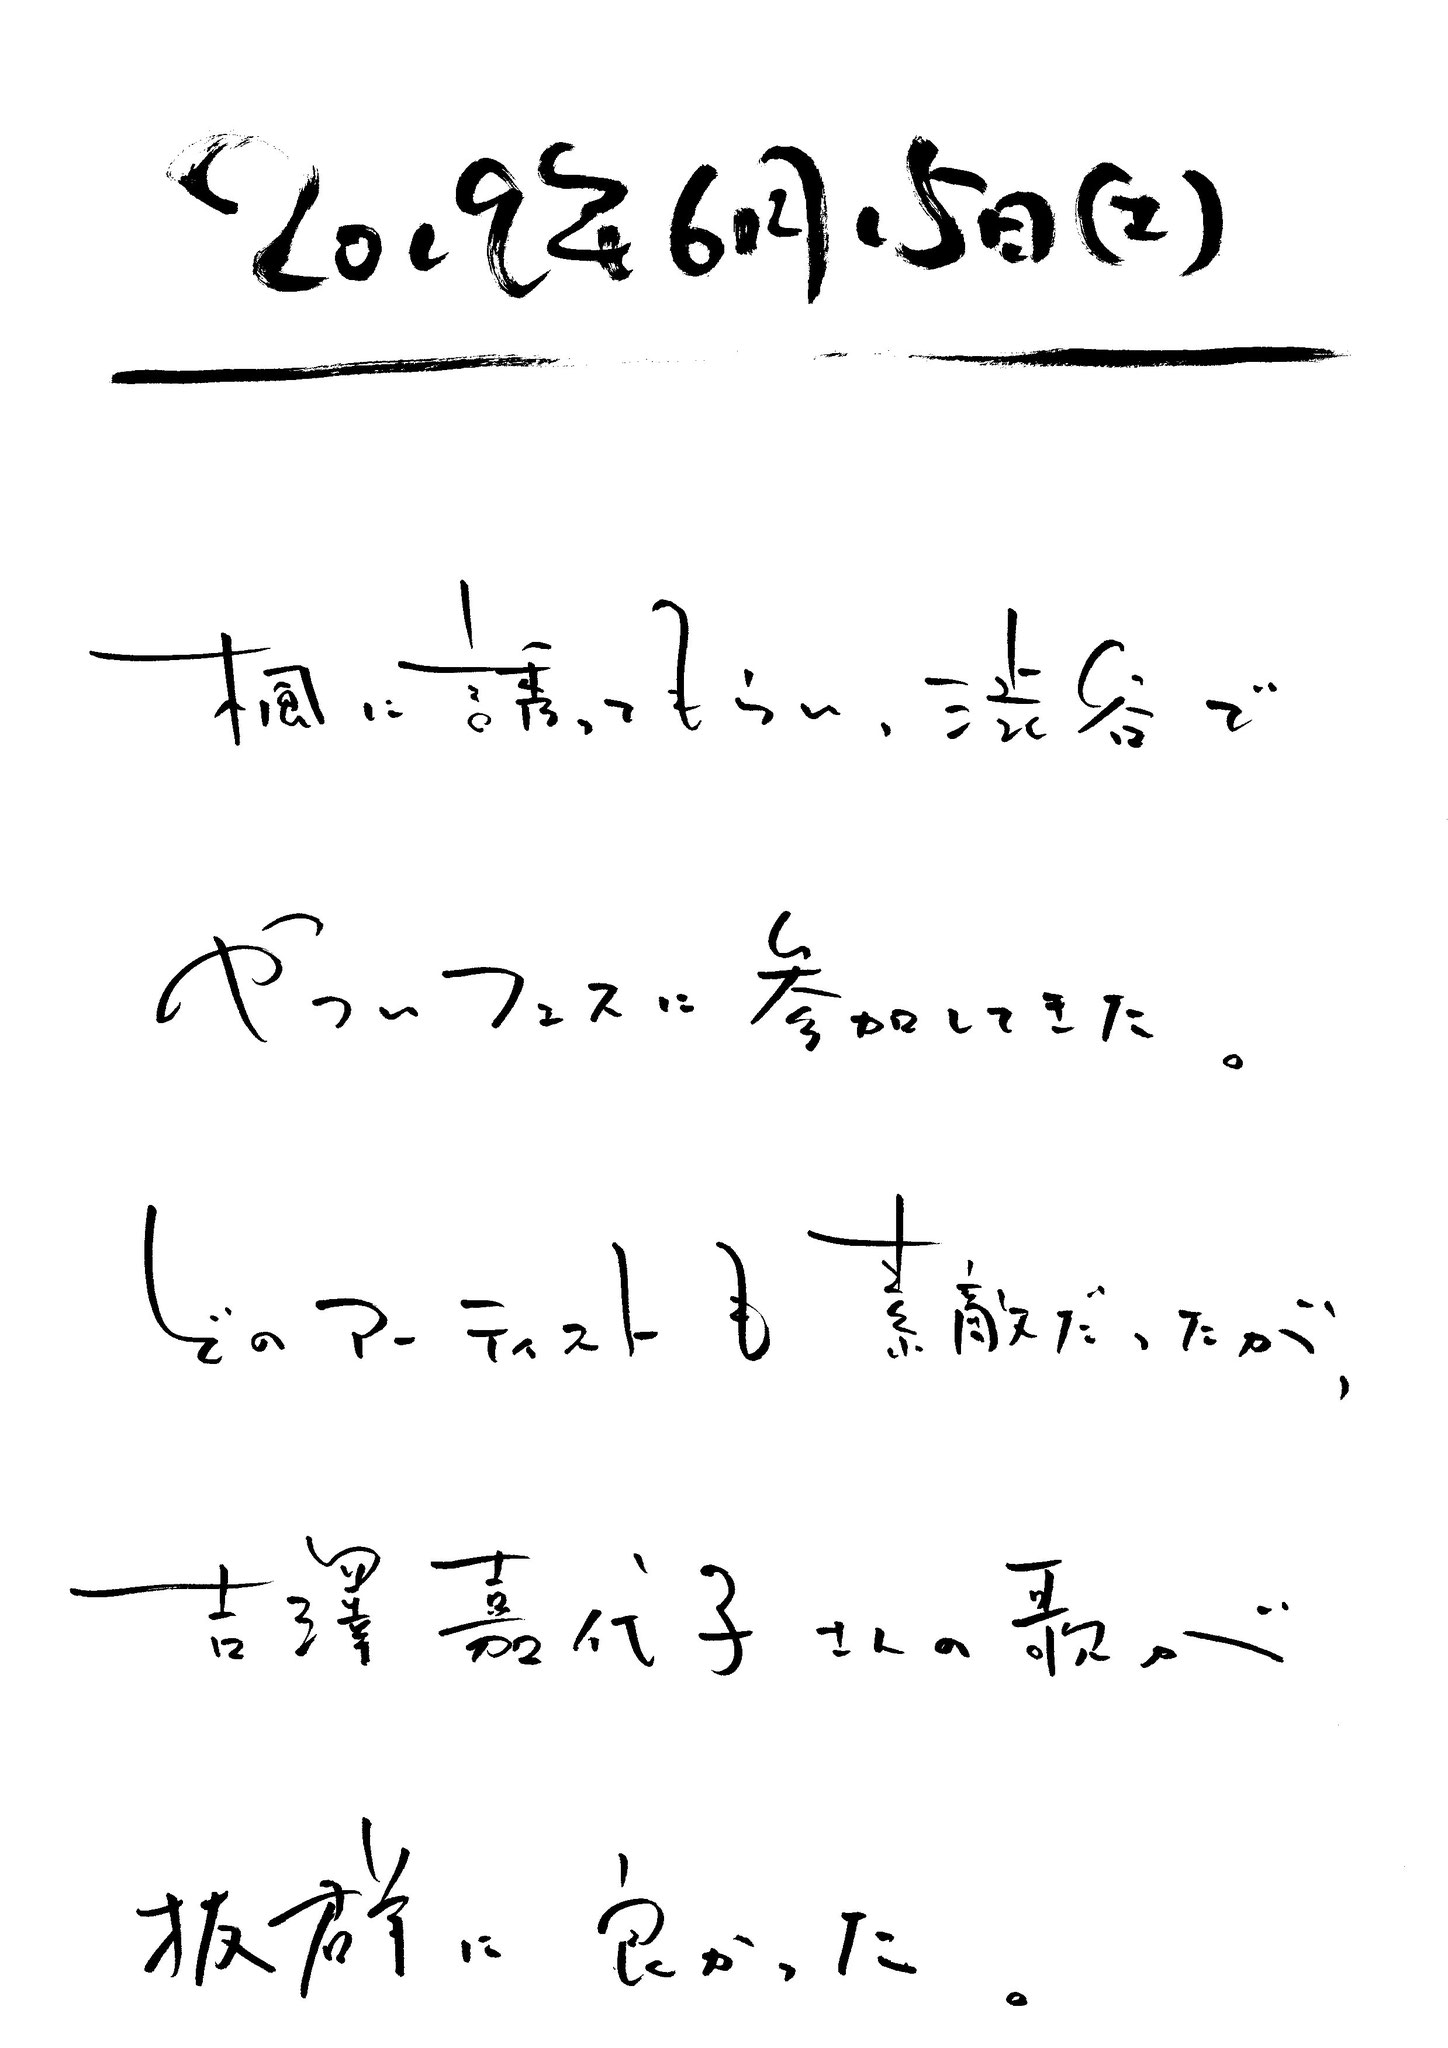 2019年6月15日(土)
楓に誘ってもらい、渋谷で
やついフェスに参加してきた。
どのアーティストも素敵だったが、
吉澤嘉代子さんの歌が
抜群に良かった。